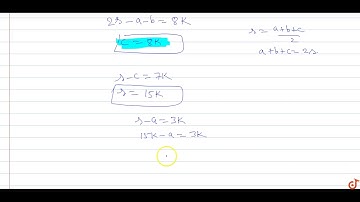 2s - a - b = 8K
c = 8K
s - c = 7K
s = 15K
s - a = 3K
15K - a = 3K
s = a+b+c / 2
a+b+c = 2s